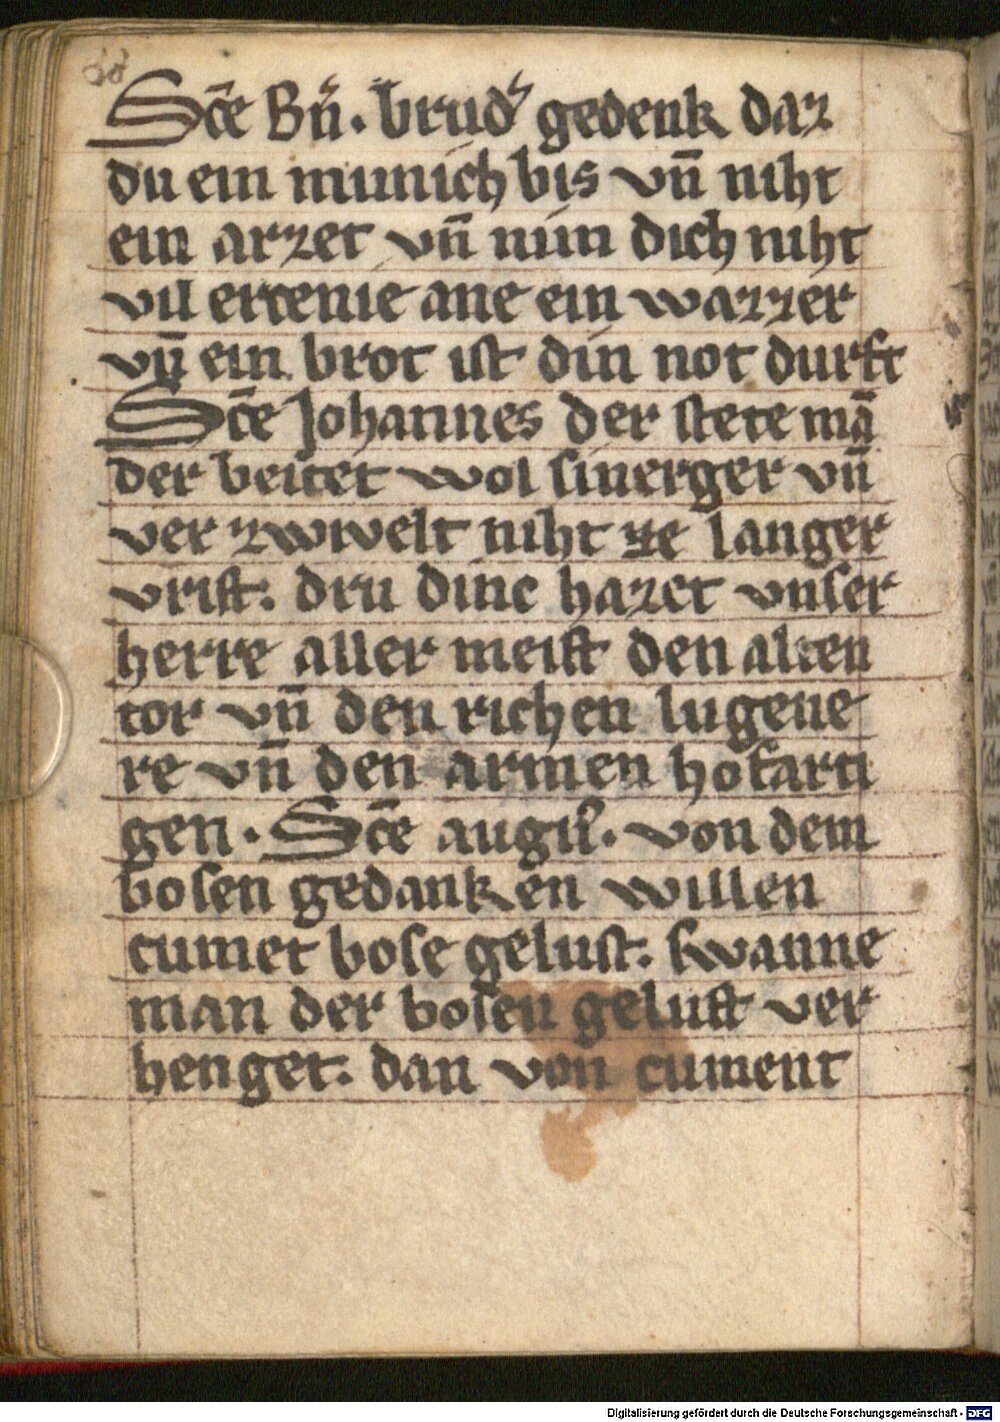 88
Sc̄e Bn̄. brud' gedenk daz
du ein munich bis vn̄ niht
ein arzet vn̄ nim dich niht
vil ercenie ane ein wazzer
vn̄ ein brot ist din not durft
Sc̄e Johannes der stete mā
der beitet wol sinerger vn̄
ver zwivelt niht ze langer
vrist. dru dinc hazet vnser
herre aller meist den alten
tor vn̄ den richen lugene
re vn̄ den armen hofarti
gen. Sc̄e augū. von dem
bosen gedanken willen
cumet bose gelust. swanne
man der bosen gelust ver
henget. dan von cument
Digitalisierung gefördert durch die Deutsche Forschungsgemeinschaft - DFG